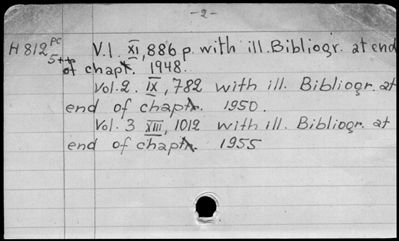 -2-
H812 PC V.1. XI, 886 p. with ill. Bibliogr. at end
5++ of chapt. 1948.
Vol.2. IX, 782 with ill. Bibliogr. at
end of chapt. 1950.
Vol. 3 XIII, 1012 with ill. Bibliogr. at
end of chapt. 1955